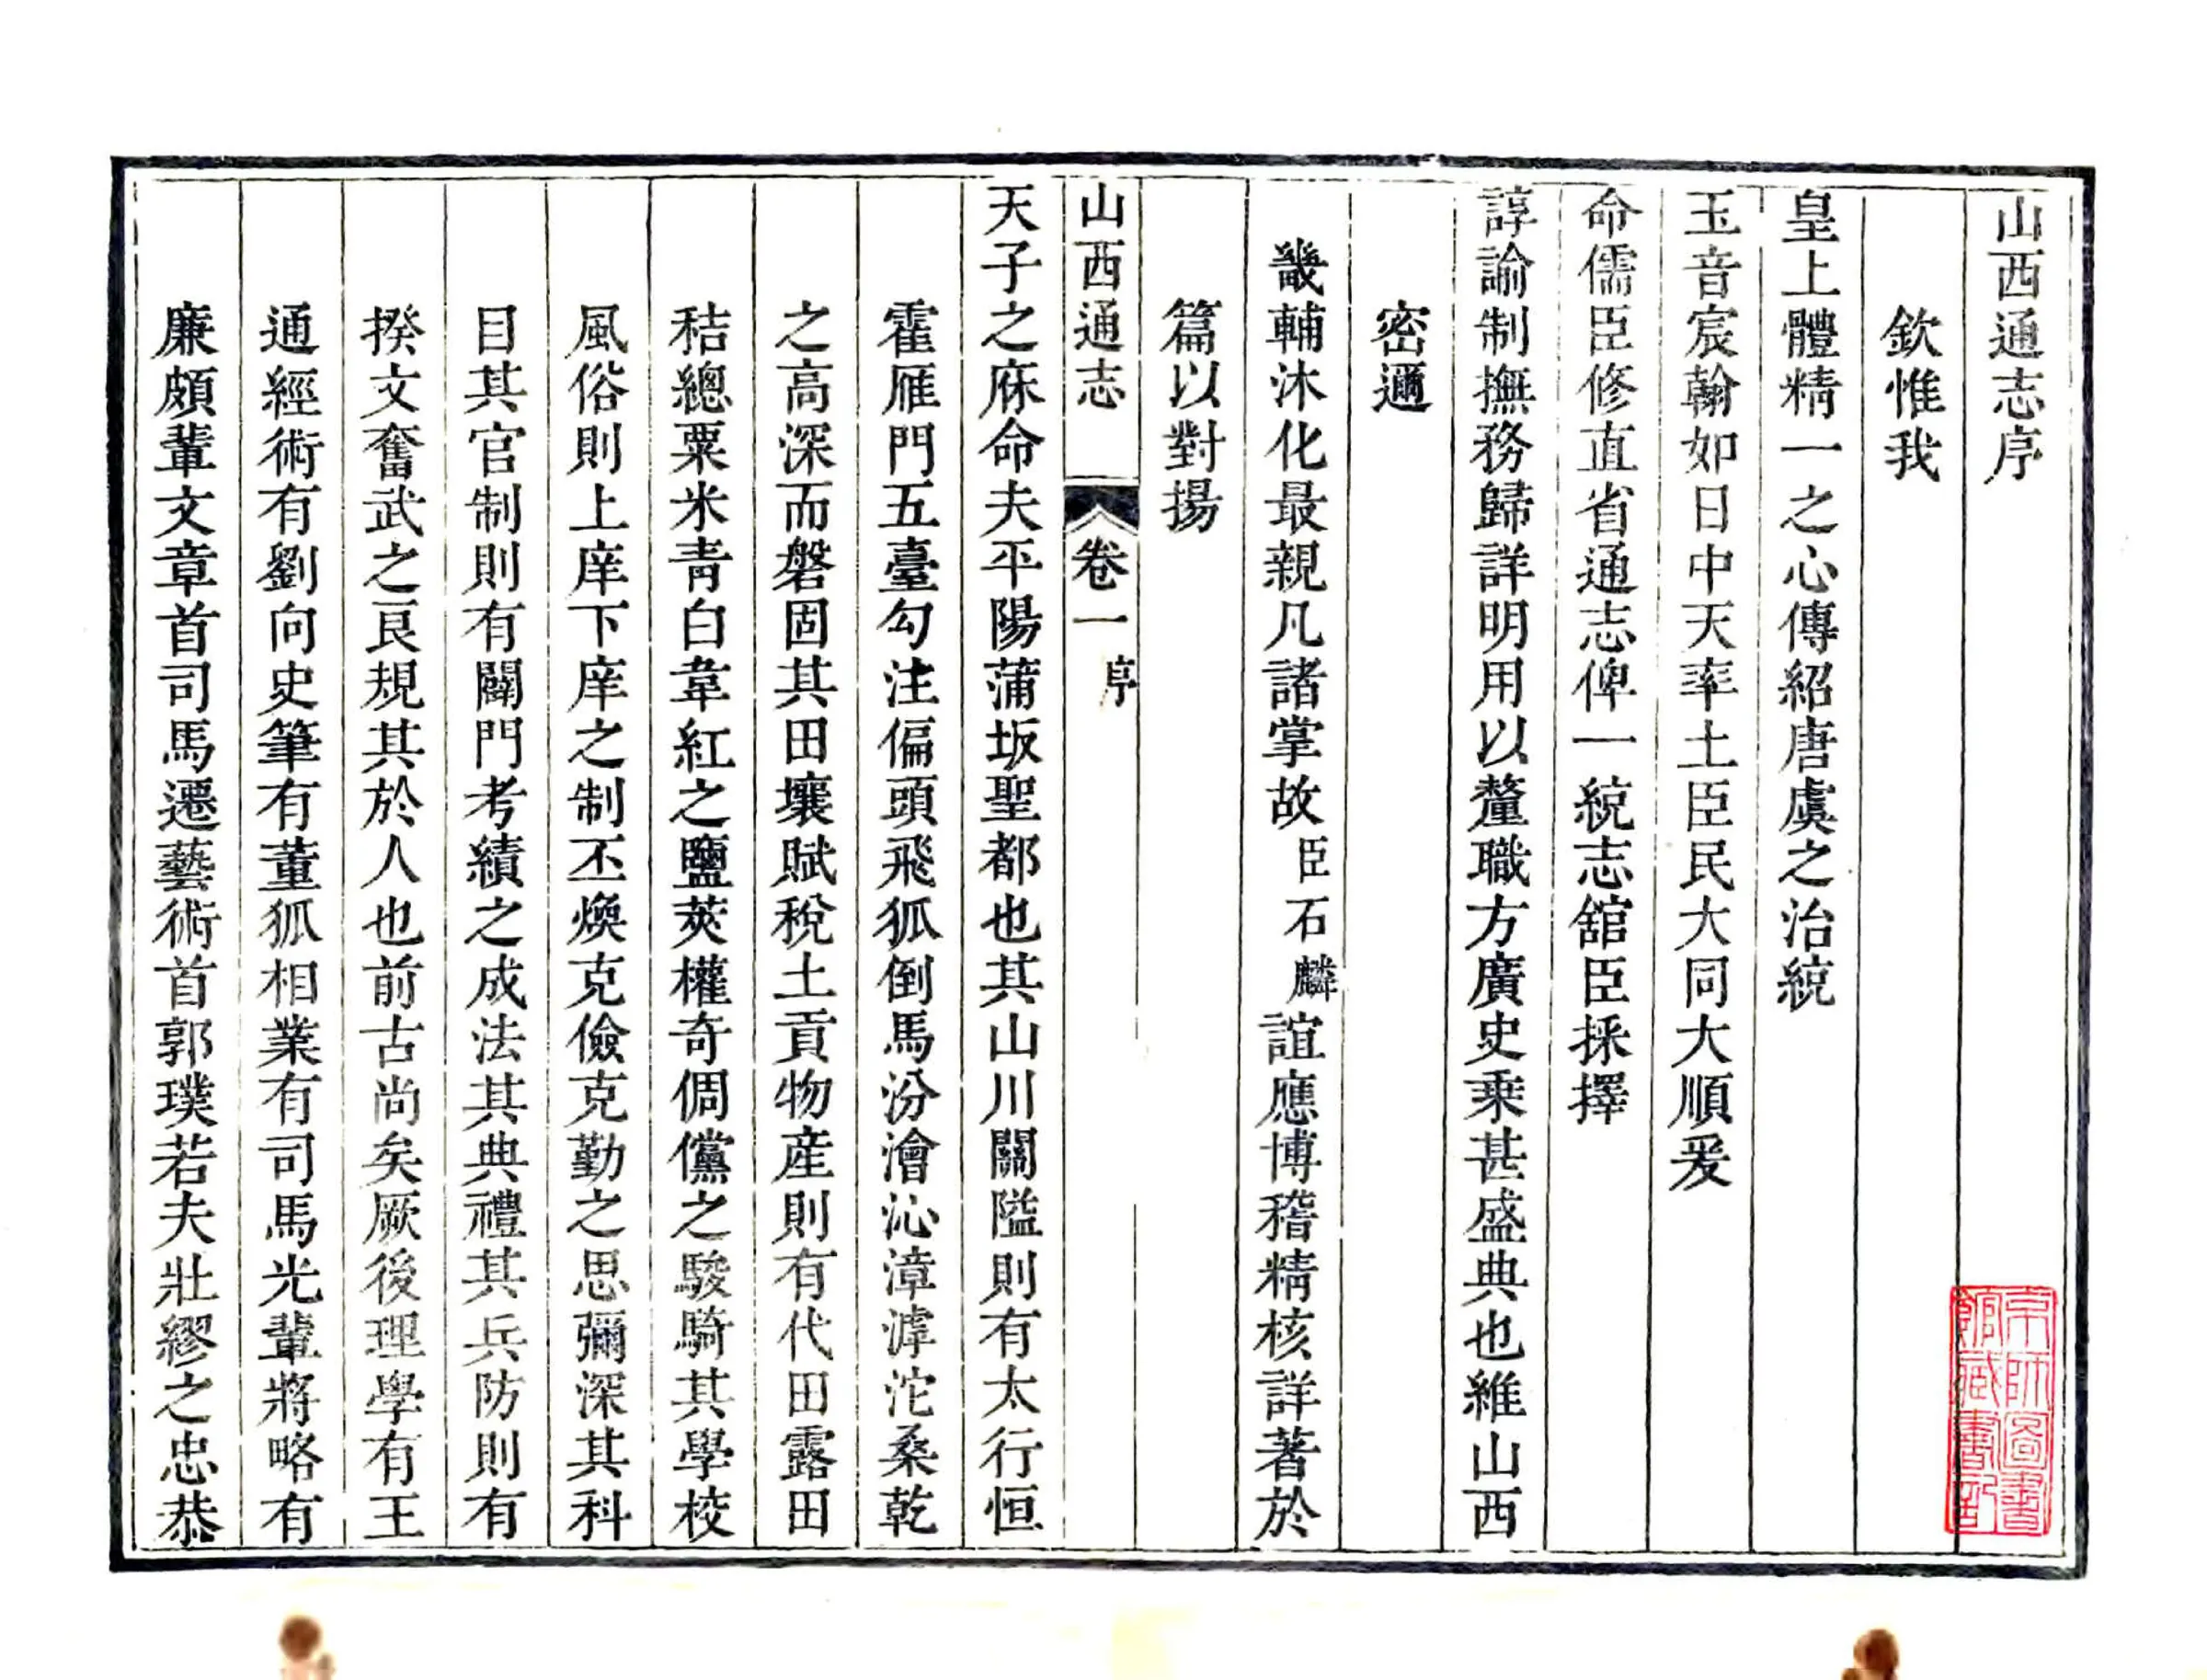 山西通志序
欽惟我
皇上體精一之心傳紹唐虞之治統
玉音宸翰如日中天率土臣民大同大順爰
命儒臣修直省通志俾一統志舘臣採擇
諄諭制撫務歸詳明用以釐職方廣史乘甚盛典也維山西
密邇
畿輔沐化最親凡諸掌故臣石麟誼應博稽精核詳著於
篇以對揚
山西通志 卷一 序
天子之庥命夫平陽蒲坂聖都也其山川關隘則有太行恒
霍雁門五臺勾注偏頭飛狐倒馬汾澮沁漳滹沱桑乾
之高深而磐固其田壤賦稅土貢物産則有代田露田
秸總粟米青白韋紅之鹽莢權奇倜儻之駿騎其學校
風俗則上庠下庠之制丕煥克儉克勤之思彌深其科
目其官制則有闢門考績之成法其典禮其兵防則有
揆文奮武之良規其於人也前古尚矣厥後理學有王
通經術有劉向史筆有董狐相業有司馬光輩將略有
廉頗輩文章首司馬遷藝術首郭璞若夫壯繆之忠恭
京師圖書館藏書記